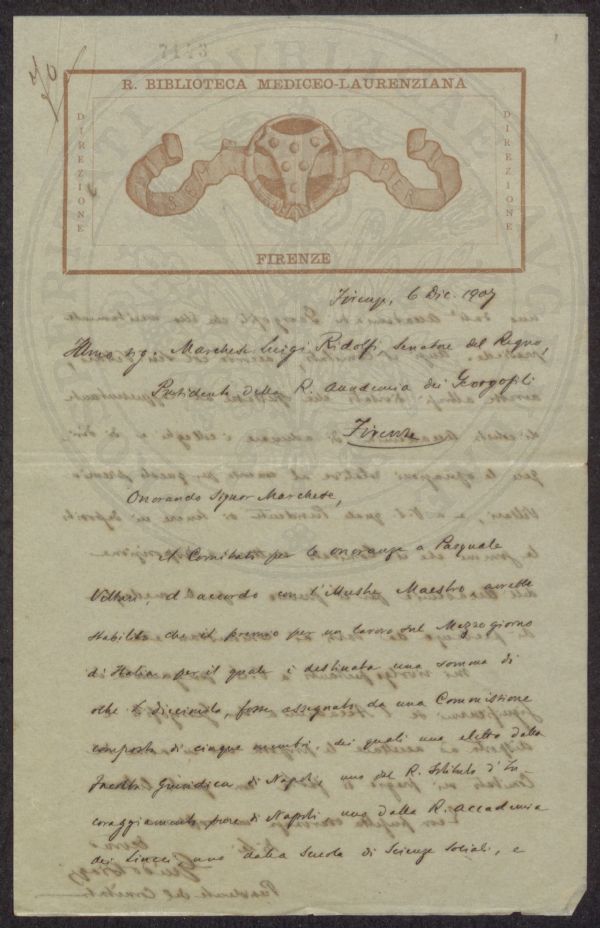 7113
R. BIBLIOTECA MEDICEO-LAURENZIANA
DIREZIONE
SEM PER
DIREZIONE
FIRENZE
Firenze, 6 Dic. 1907
Illmo sig. Marchese Luigi Ridolfi Senatore del Regno,
Presidente della R. Accademia dei Georgofili
Firenze
Onorando Signor Marchese,
Il Comitato per le onoranze a Pasquale
Villari, d'accordo con l'illustre Maestro avrebbe
stabilito che il premio per un lavoro sul Mezzogiorno
d'Italia per il quale è destinata una somma di
oltre diecimila, fosse assegnato da una Commissione
composta di cinque membri, dei quali uno eletto dalla
Facoltà Giuridica di Napoli, uno del R. Istituto d'In
coraggiamento pure di Napoli uno dalla R. Accademia
dei Lincei, uno dalla Scuola di Scienze Sociali, e